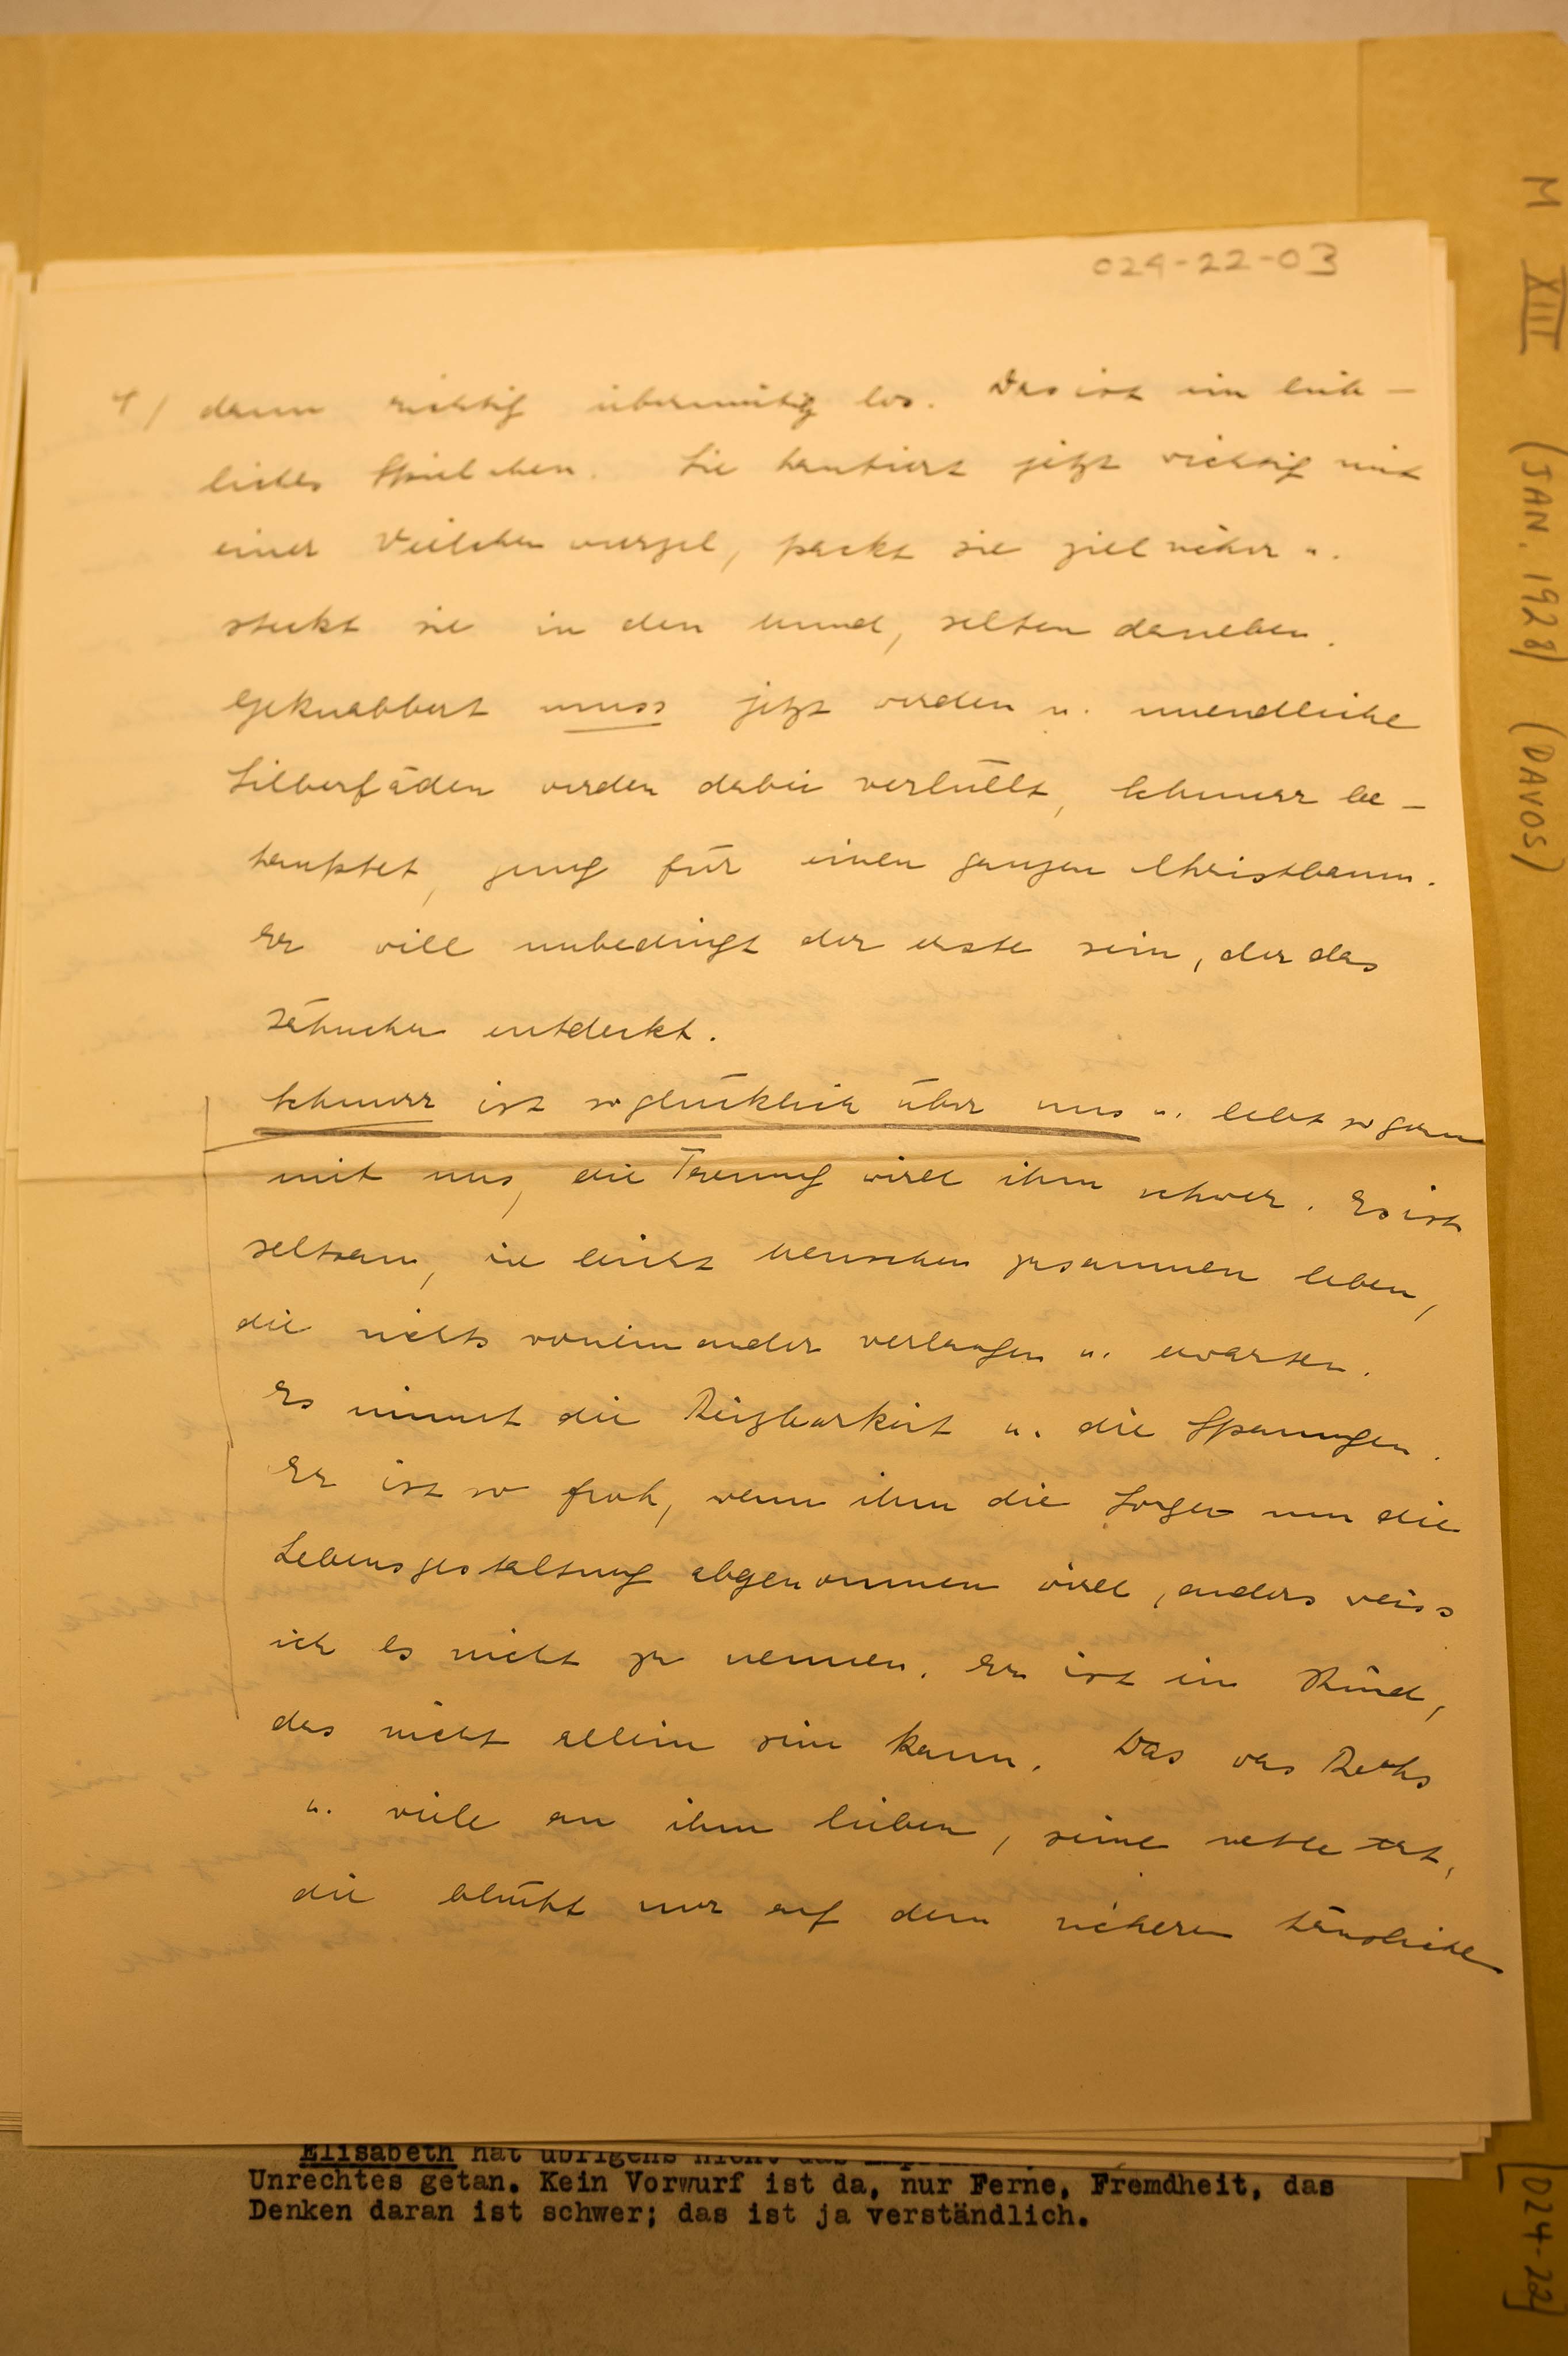 024-22-03
4/ dann richtig übermütig los. Das ist ein lieb-
liches Spielchen. Sie hantiert jetzt richtig mit
einer Veilchenwurzel, packt sie zielsicher u.
steckt sie in den Mund, selten daneben.
Geknabbert muss jetzt werden u. unendliche
Silberfäden werden dabei verhüllt, Schnurr be-
hauptet, genug für einen ganzen Christbaum.
Er will unbedingt der erste sein, der das
Zähnchen entdeckt.
Schnurr ist so glücklich über uns u. lebt so gern
mit uns, die Trennung wird ihm schwer. Es ist
seltsam, wie leicht Menschen zusammen leben,
die nichts voneinander verlangen u. erwarten.
Es nimmt die Reizbarkeit u. die Spannungen.
Er ist so froh, wenn ihm die Sorge um die
Lebensgestaltung abgenommen wird, anders weiss
ich es nicht zu nennen. Er ist ein Kind,
das nicht allein sein kann. Das was
u. viele an ihm lieben, seine nette Art,
die blüht nur auf dem sicheren häusliche
Elisabeth hat übrigens nicht das
Unrechtes getan. Kein Vorwurf ist da, nur Ferne, Fremdheit, das
Denken daran ist schwer; das ist ja verständlich.
M XIII (JAN. 1928) (DAVOS)
[024-22]